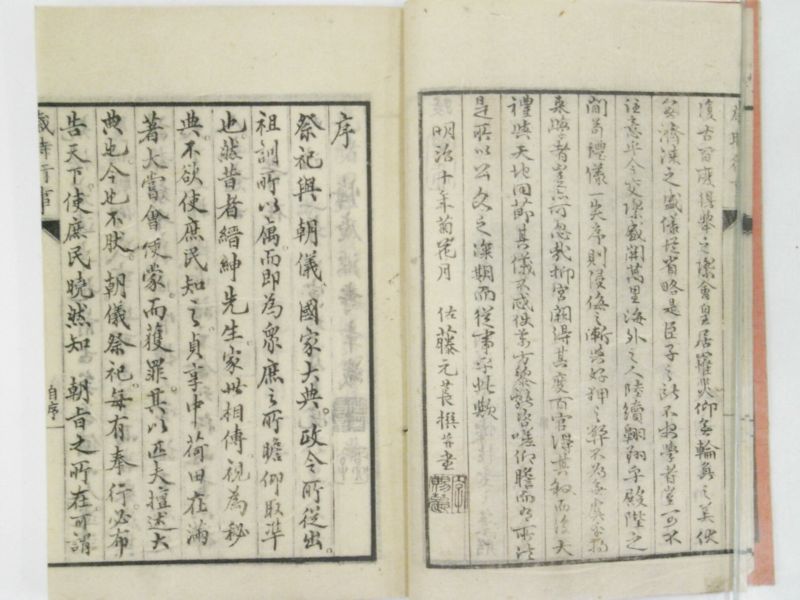 復古百廢俱舉之際會皇居罹災仰無輪奐之美伏
濟之盛儀從省略是臣子之所不學者豈可不
注意乎今交際盛開萬里海外之人陸續翱翔乎殿陛之
間苟禮儀一失序則侵侮之漸
學者豈可忽哉抑宮闕得其度百官得其敘而後大
禮與天地同節其儀不惑
是所以公文之深期而從事乎此歟
明治十年菊花月 佐藤元萇撰并書
序
祭祀與 朝儀國家大典。政令所從出。
祖訓所以寓。而即為衆庶之所瞻仰取準
也。然昔者縉紳先生。家世相傳。視為秘
典。不欲使庶民知之。貞享中荷田在滿
著大嘗會便蒙。而獲罪。其以匹夫擅述大
典也。今也不然。朝儀祭祀。每有奉行。必布
告天下。使庶民曉然知 朝旨之所在。可謂
歲時行事
自序